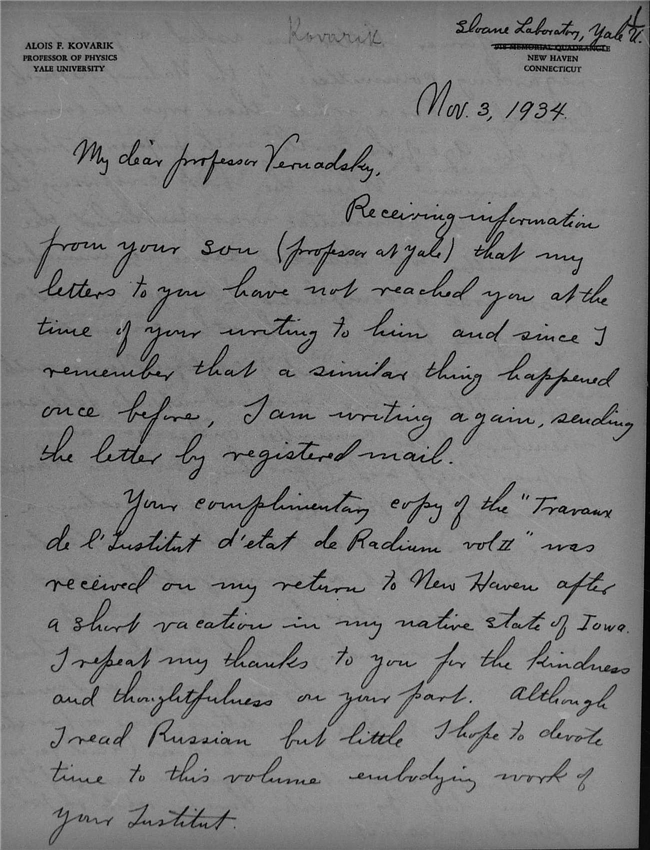 Kovarik
1
Sloane Laboratory, Yale U.
ALOIS F. KOVARIK
PROFESSOR OF PHYSICS
YALE UNIVERSITY
MEMORIAL QUADRANGLE
NEW HAVEN
CONNECTICUT
Nov. 3, 1934.
My dear professor Vernadsky,
Receiving information
from your son (professor at Yale) that my
letters to you have not reached you at the
time of your writing to him and since I
remember that a similar thing happened
once before, I am writing again, sending
the letter by registered mail.
Your complimentary copy of the "Travaux
de l'Institut d'etat de Radium vol II" was
received on my return to New Haven after
a short vacation in my native state of Iowa.
I repeat my thanks to you for the kindness
and thoughtfulness on your part. Although
I read Russian but little I hope to devote
time to this volume embodying work of
your Institut.